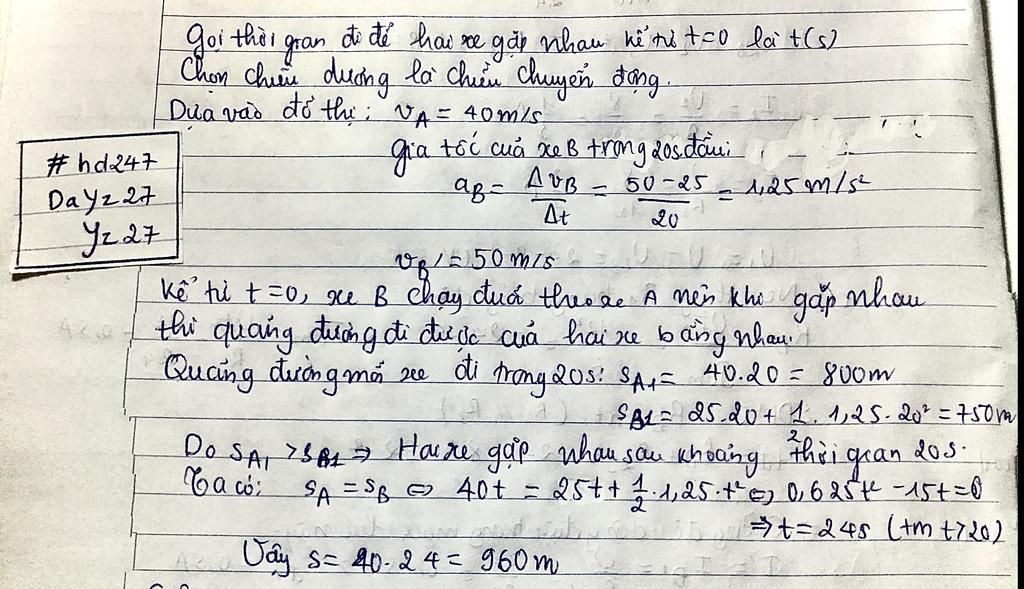 Gọi thời gian đi để hai xe gặp nhau kể từ t=0 là t(s)
Chọn chiều dương là chiều chuyển động.
Dựa vào đồ thị: vA = 40m/s
Gia tốc của xe B trong 20s đầu:
aB = ΔvB/Δt = 50-25/20 = 1,25 m/s²
vB' = 50 m/s
# hd247
DaYz27
Yz27
Kể từ t=0, xe B chạy đuổi theo xe A nên khi gặp nhau
thì quãng đường đi được của hai xe bằng nhau.
Quãng đường mỗi xe đi trong 20s: sA1 = 40.20 = 800m
sB1 = 25.20 + 1/2 . 1,25. 20² = 750m
Do sA1 > sB1 ⇒ Hai xe gặp nhau sau khoảng thời gian 20s.
Ta có: sA = sB ⇔ 40t = 25t + 1/2 . 1,25 . t² ⇔ 0,625t² - 15t = 0
⇒ t = 24s (tm t>20)
Vậy s = 40.24 = 960m